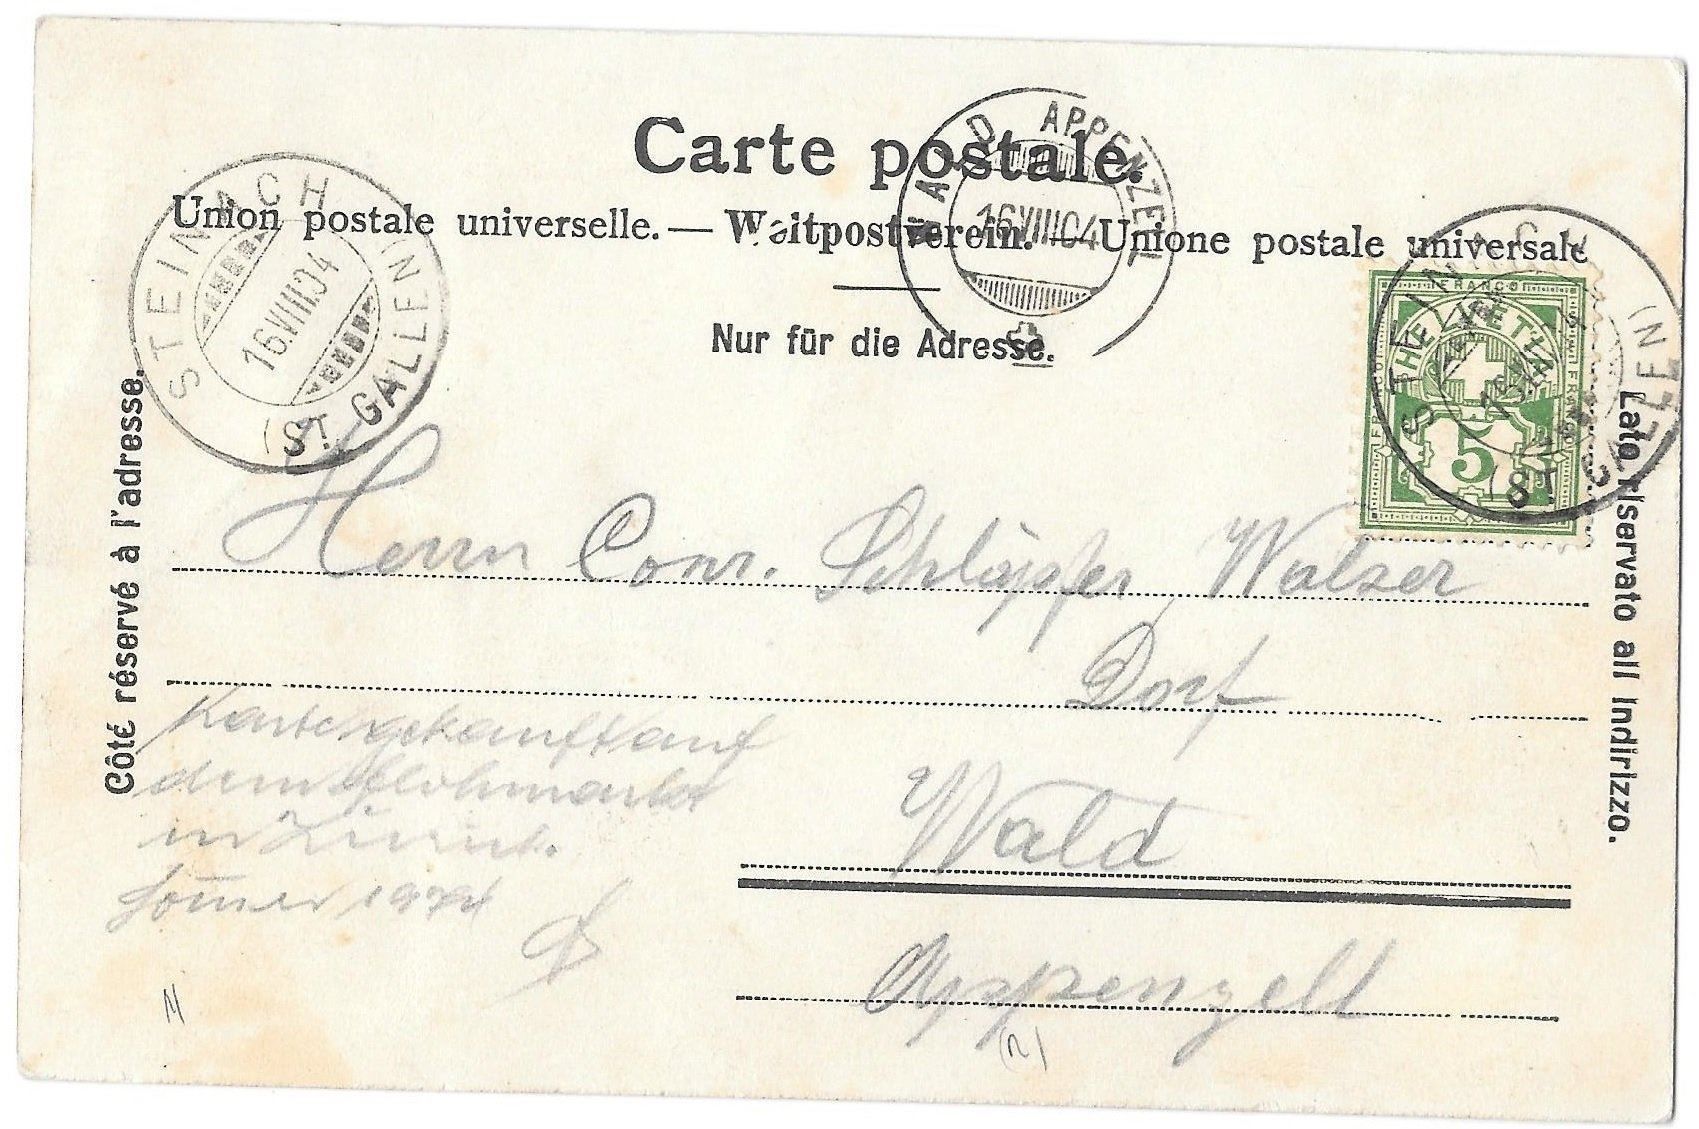 Carte postale.
Union postale universelle. — Weltpostverein. — Unione postale universale
Nur für die Adresse.
Côté réservé à l'adresse.
Lato riservato all Indirizzo.
STEINACH
16.VIII.04
(ST. GALLEN)
WALD APPENZELL
16.VIII.04
STEINACH
(ST. GALLEN)
FRANCO
HELVETIA
5
Herrn Conr. Schläpfer Walser
Dorf
Wald
Appenzell
Karte gekauft auf
dem Flohmarkt
in Zürich.
Sommer 19